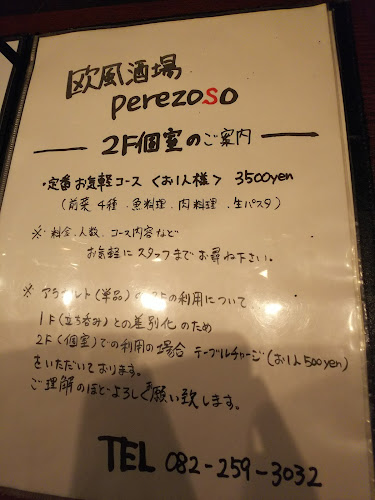 欧風酒場
perezoso
2F個室のご案内
・定番お気軽コース〈お1人様〉 3500yen
(前菜4種.魚料理.肉料理.生パスタ)
※ 料金.人数.コース内容など
お気軽にスタッフまでお尋ね下さい。
※ アラカルト(単品)の2Fの利用について
1F(立ち呑み)との差別化のため
2F(個室)での利用の場合 テーブルチャージ(お1人500yen)
をいただいております。
ご理解のほどよろしくお願い致します。
TEL 082-259-3032